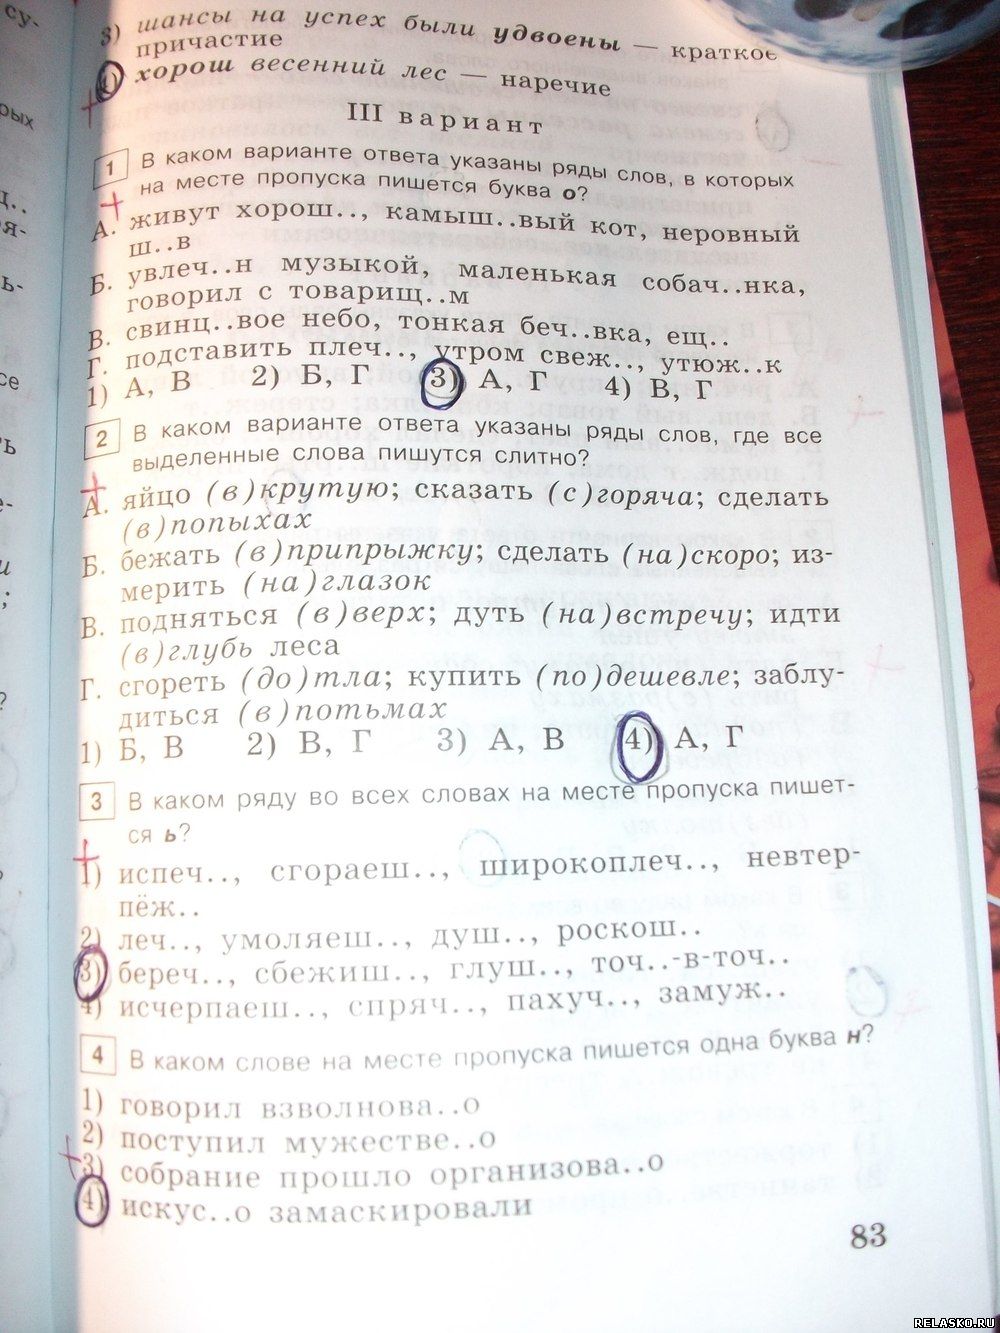 3) шансы на успех были удвоены — краткое
причастие
4) хорош весенний лес — наречие
III вариант
1 В каком варианте ответа указаны ряды слов, в которых
на месте пропуска пишется буква о?
А. живут хорош.., камыш..вый кот, неровный
ш..в
Б. увлеч..н музыкой, маленькая собач..нка,
говорил с товарищ..м
В. свинц..вое небо, тонкая беч..вка, ещ..
Г. подставить плеч.., утром свеж.., утюж..к
1) А, В 2) Б, Г 3) А, Г 4) В, Г
2 В каком варианте ответа указаны ряды слов, где все
выделенные слова пишутся слитно?
А. яйцо (в)крутую; сказать (с)горяча; сделать
(в)попыхах
Б. бежать (в)припрыжку; сделать (на)скоро; из-
мерить (на)глазок
В. подняться (в)верх; дуть (на)встречу; идти
(в)глубь леса
Г. сгореть (до)тла; купить (по)дешевле; заблу-
диться (в)потьмах
1) Б, В 2) В, Г 3) А, В 4) А, Г
3 В каком ряду во всех словах на месте пропуска пишет-
ся ь?
1) испеч.., сгораеш.., широкоплеч.., невтер-
пёж..
2) леч.., умоляеш.., душ.., роскош..
3) береч.., сбежиш.., глуш.., точ..-в-точ..
4) исчерпаеш.., спряч.., пахуч.., замуж..
4 В каком слове на месте пропуска пишется одна буква н?
1) говорил взволнова..о
2) поступил мужестве..о
3) собрание прошло организова..о
4) искус..о замаскировали
83
RELASKO.RU